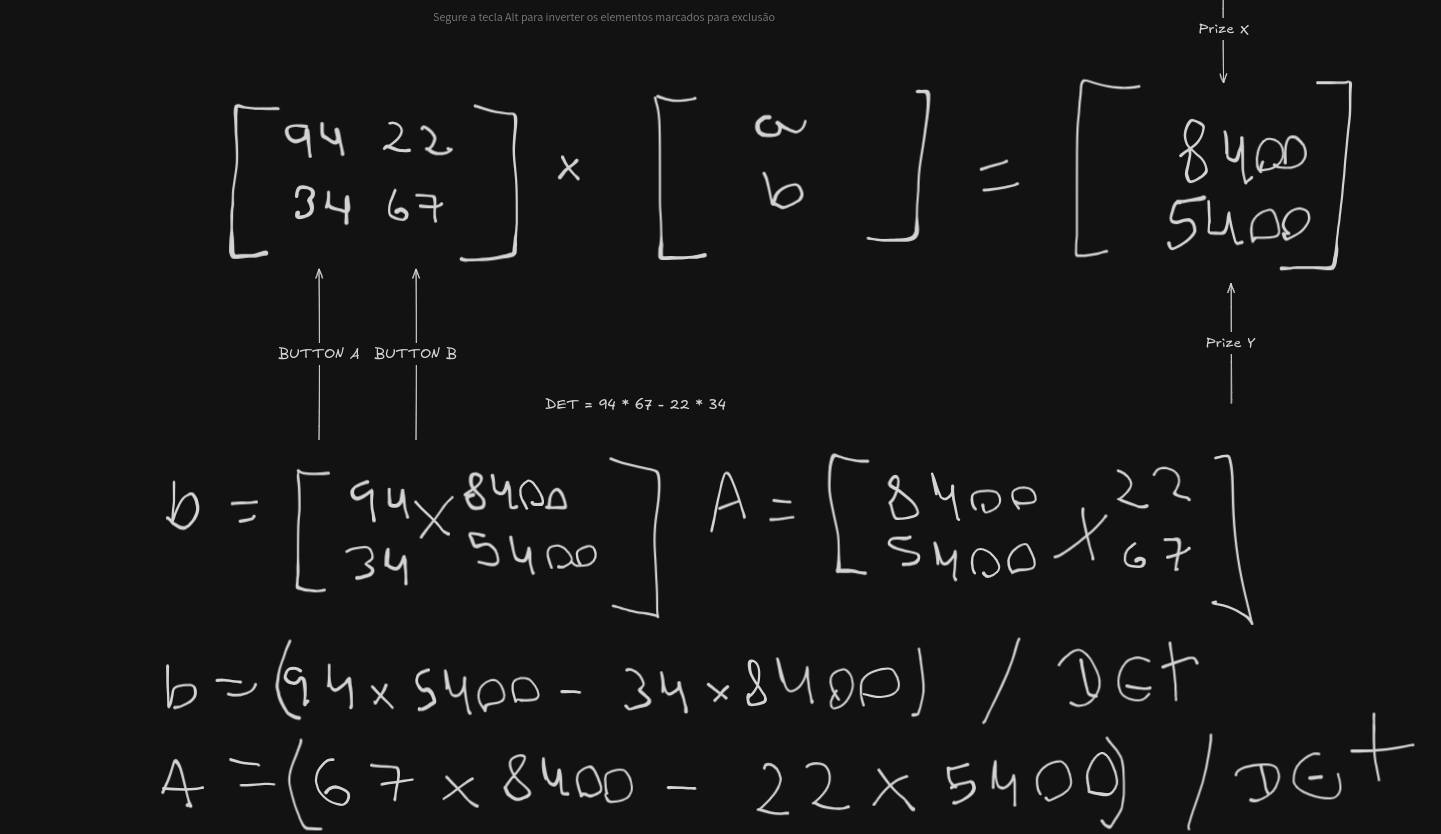 Segure a tecla Alt para inverter os elementos marcados para exclusão
Prize X
[ 94 22 ] × [ a ] = [ 8400 ]
[ 34 67 ] [ b ] [ 5400 ]
BUTTON A BUTTON B
Prize Y
DET = 94 * 67 - 22 * 34
b = [ 94 × 8400 ] A = [ 8400 × 22 ]
[ 34 5400 ] [ 5400 67 ]
b = (94 × 5400 - 34 × 8400) / DET
A = (67 × 8400 - 22 × 5400) / DET